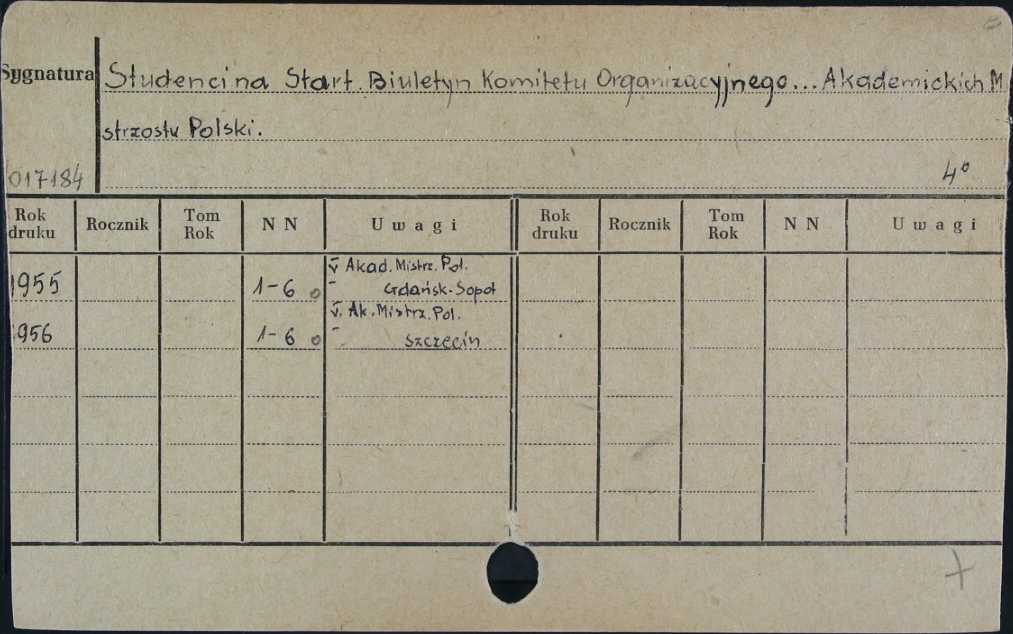 Sygnatura Studenci na Start. Biuletyn Komitetu Organizacyjnego... Akademickich M
strzostw Polski.
017184 4°
Rok druku Rocznik Tom Rok N N Uwagi Rok druku Rocznik Tom Rok N N Uwagi
V Akad. Mistrz. Pol.
1955 1-6 Gdańsk-Sopot
V. Ak. Mistrz. Pol.
1956 1-6 Szczecin